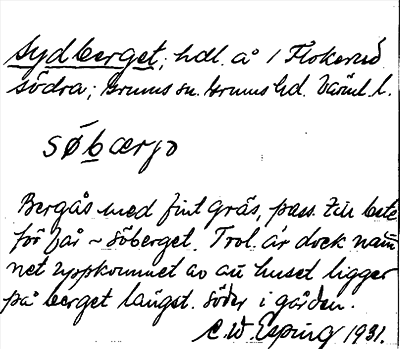 Sydberget, hdl. å 1 Flokerud
södra; Grums sn. Grums hd. Värml. l.
søbærjɔ
Bergås med fint gräs, pass. till bete
för får ~ söberget. Trol. är dock nam
net uppkommet av att huset ligger
på berget längst. söder i gården.
C. W Esping 1931.